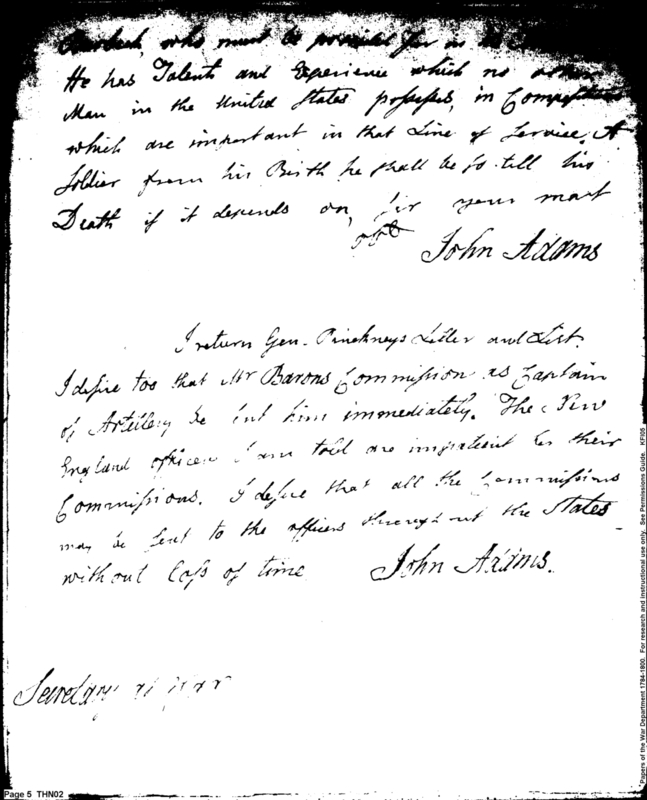 who must be provided for in
He has Talents and Experience which no
Man in the United States possesses, in
which are important in that Line of Service. A
Soldier from his Birth he shall be so till his
Death if it depends on, Sir your most
obt
John Adams
I return Gen. Pinckneys Letter and List.
I desire too that Mr Barons Commission as Captain
of Artillery be sent him immediately. The New
England officers I am told are impatient for their
Commissions. I desire that all the Commissions
may be sent to the officers throughout the States
without Loss of time
John Adams.
Secretary at War
Page 5 THN02
Papers of the War Department 1784-1800. For research and instructional use only. See Permissions Guide. KF86